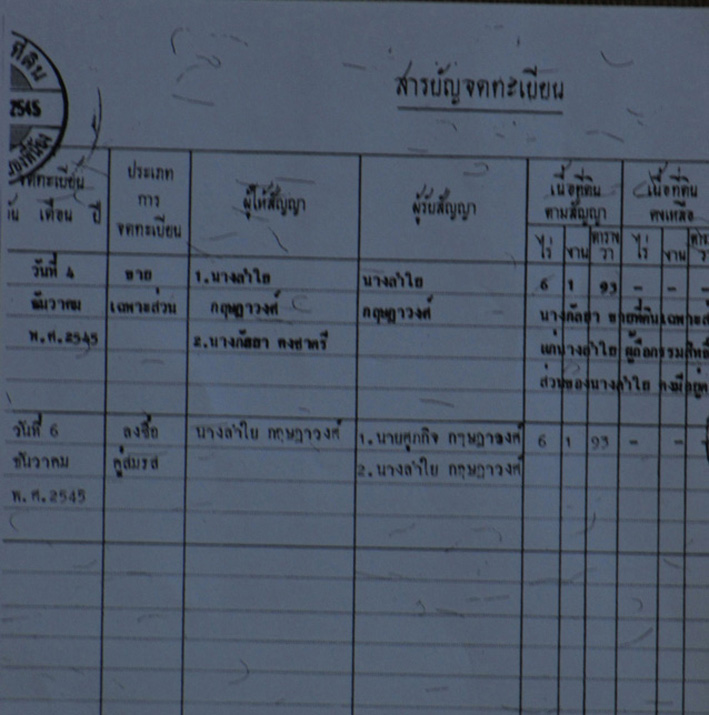 ที่ดิน
2545
สารบัญจดทะเบียน
จดทะเบียน
เดือน ปี
ประเภท
การ
จดทะเบียน
ผู้ให้สัญญา
ผู้รับสัญญา
เนื้อที่ดิน
ตามสัญญา
เนื้อที่ดิน
คงเหลือ
ไร่ งาน ตาราง วา ไร่ งาน
วันที่ 4 ขาย 1.นางลำใย นางลำใย 6 1 93 - - -
ธันวาคม เฉพาะส่วน กฤษฎาวงศ์ กฤษฎาวงศ์ นางกัลยา ขายที่ดินเฉพาะ
พ.ศ.2545 2.นางกัลยา คงชาตรี แก่นางลำใย ผู้ถือกรรมสิทธิ์
ส่วนของนางลำใย คงมีอยู่
วันที่ 6 ลงชื่อ นางลำใย กฤษฎาวงศ์ 1.นายศุภกิจ กฤษฎาวงศ์ 6 1 93 - -
ธันวาคม คู่สมรส 2.นางลำใย กฤษฎาวงศ์
พ.ศ.2545